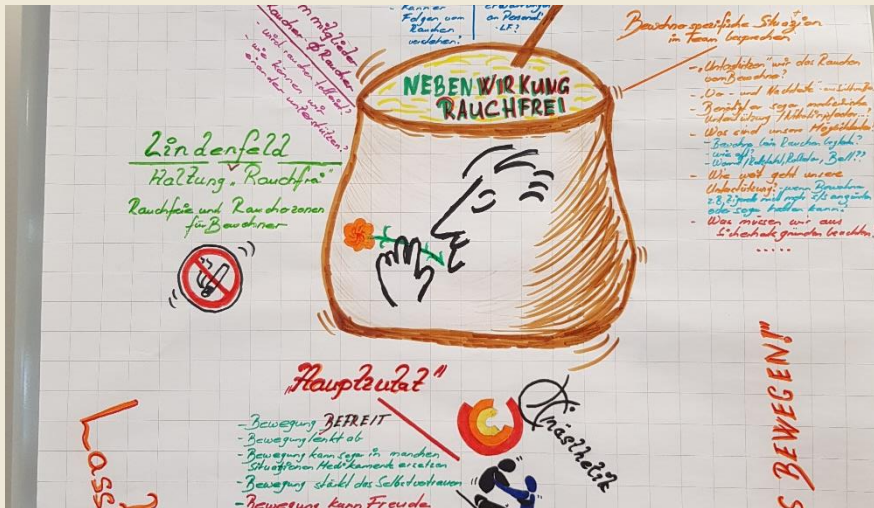 mitglieder
Raucher Ø Raucher
wird rauchen toleriert?
wie können wir
einander unterstützen?
Kenner
Folgen vom
Rauchen
verstehen?
an Personal
LF?
Bewohnerspezifische Situation
im Team besprechen
- „Unterstützen" wir das Rauchen
vom Bewohner?
- Vor- und Nachteile
- Benötigt er sogar medizinische
Unterstützung / Nikotinpflaster?
- Was sind unsere Möglichkeiten
- Bewohner beim Rauchen begleiten?
- wie oft?
- Wann?
- Wie weit geht unsere
Unterstützung? wenn Bewohner
z.B. Zigarette nicht mehr s/s anzünden
oder sogar halten kann?
- Was müssen wir aus
Sicherheitsgründen beachten
.....
NEBENWIRKUNG
RAUCHFREI
Lindenfeld
Haltung „Rauchfrei"
Rauchfreie und Raucherzonen
für Bewohner
„Hauptzutat"
- Bewegung BEFREIT
- Bewegung lenkt ab
- Bewegung kann sogar in manchen
Situationen Medikamente ersetzen
- Bewegung stärkt das Selbstvertrauen
- Bewegung kann Freude
Kinästhetik
Lass
S BEWEGEN!"